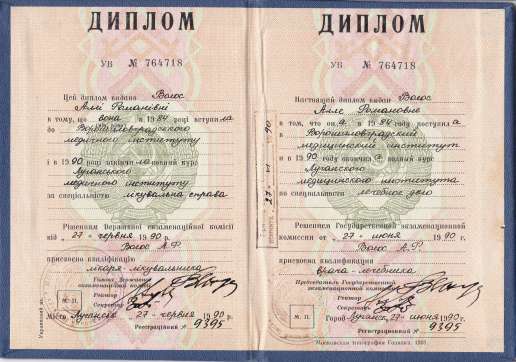 ДИПЛОМ
УВ № 764718
Цей диплом видано Волос
Аллі Романівні
в тому, що вона в 1984 році вступила
до Ворошиловградського
медичного інституту
і в 1990 році закінчила повний курс
Луганського
медичного інституту
за спеціальністю лікувальна справа
Рішенням Державної екзаменаційної комісії
від „27“ червня 1990 р.
Волос А.Р.
присвоєно кваліфікацію
лікаря-лікувальника
Голова Державної
екзаменаційної комісії
Ректор
Секретар
М. П.
Місто Луганськ 27 червня 1990 р.
Реєстраційний № 9395
ДИПЛОМ
УВ № 764718
Настоящий диплом выдан Волос
Алле Романовне
в том, что она в 1984 году поступила
в Ворошиловградский
медицинский институт
и в 1990 году окончила полный курс
Луганского
медицинского института
по специальности лечебное дело
Решением Государственной экзаменационной
комиссии от „27“ июня 1990 г.
Волос А.Р.
присвоена квалификация
врача-лечебника
Председатель Государственной
экзаменационной комиссии
Ректор
Секретарь
М. П.
Город Луганск, 27 июня 1990 г.
Регистрационный № 9395
Московская типография Гознака. 1981